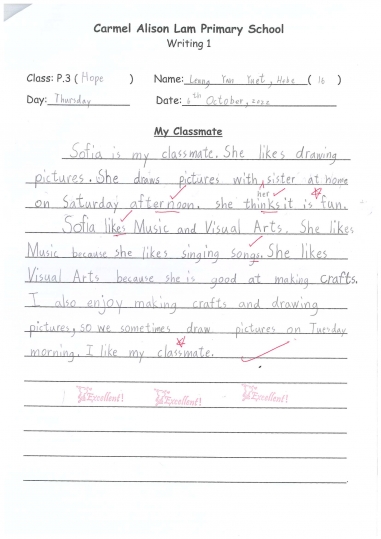 Carmel Alison Lam Primary School
Writing 1
Class: P.3 ( Hope ) Name: Leung Yan Yuet, Hebe ( 16 )
Day: Thursday Date: 6th October, 2022
My Classmate
Sofia is my classmate. She likes drawing
pictures. She draws pictures with sister at home
her
on Saturday afternoon. she thinks it is fun.
Sofia likes Music and Visual Arts. She likes
Music because she likes singing songs. She likes
Visual Arts because she is good at making crafts.
I also enjoy making crafts and drawing
pictures, so we sometimes draw pictures on Tuesday
morning. I like my classmate.
Excellent! Excellent! Excellent!